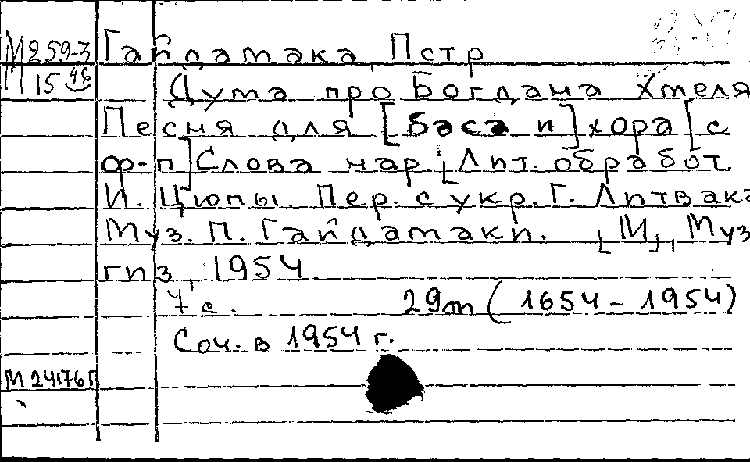 М 259-3 Гайдамака, Петр
М 15 46 Дума про Богдана Хмеля
Песня для [баса и] хора [с
ф-п] Слова нар. [Лит. обработ.
И. Цюпы. Пер. с укр. Г. Литвака
Муз. П. Гайдамаки. [М], Муз
гиз, 1954.
7 с. 29т (1654-1954)
Соч. в 1954 г.
М 24176 П